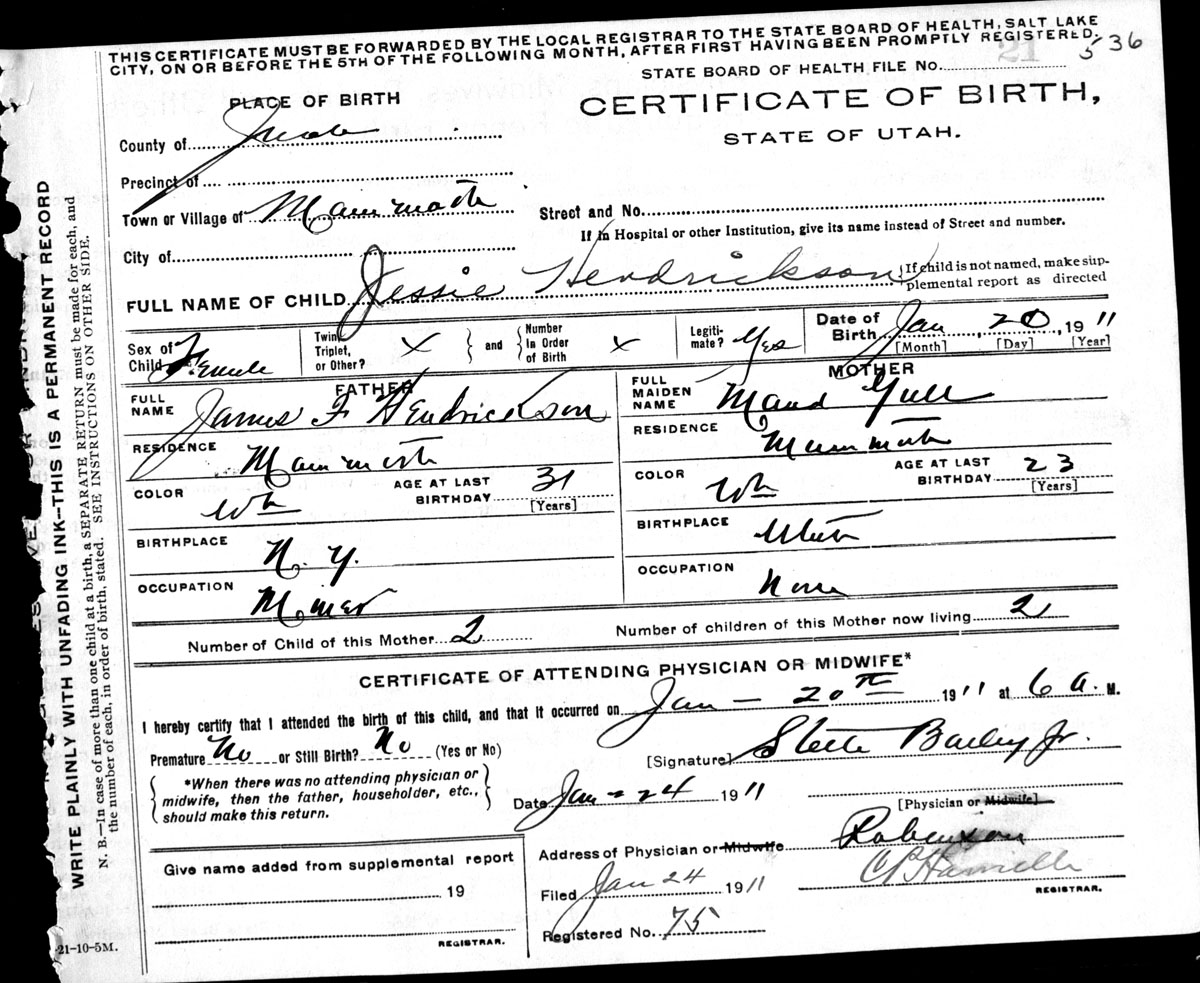 THIS CERTIFICATE MUST BE FORWARDED BY THE LOCAL REGISTRAR TO THE STATE BOARD OF HEALTH, SALT LAKE
CITY, ON OR BEFORE THE 5TH OF THE FOLLOWING MONTH, AFTER FIRST HAVING BEEN PROMPTLY REGISTERED.
21 536
STATE BOARD OF HEALTH FILE NO.
PLACE OF BIRTH
CERTIFICATE OF BIRTH,
STATE OF UTAH.
County of Juab
Precinct of
Town or Village of Mammoth
Street and No.
If in Hospital or other Institution, give its name instead of Street and number.
City of
FULL NAME OF CHILD Jessie Hendrickson
{If child is not named, make sup-
plemental report as directed
Sex of Child Female
Twin, Triplet, or Other? X
and
Number In Order of Birth X
Legiti-mate? Yes
Date of Birth Jan, 20, 1911
[Month] [Day] [Year]
FATHER
FULL NAME James F Hendrickson
RESIDENCE Mammoth
COLOR Wh
AGE AT LAST BIRTHDAY 31
[Years]
BIRTHPLACE N. Y.
OCCUPATION Miner
MOTHER
FULL MAIDEN NAME Maud
RESIDENCE Mammoth
COLOR Wh
AGE AT LAST BIRTHDAY 23
[Years]
BIRTHPLACE Utah
OCCUPATION None
Number of Child of this Mother 2
Number of children of this Mother now living 2
CERTIFICATE OF ATTENDING PHYSICIAN OR MIDWIFE*
I hereby certify that I attended the birth of this child, and that it occurred on Jan - 20th 1911 at 6 a. M.
Premature No or Still Birth? No (Yes or No)
[Signature] Steele Bailey Jr.
{*When there was no attending physician or
midwife, then the father, householder, etc.,
should make this return.}
Date Jan - 24 1911
[Physician or Midwife]
Address of Physician or Midwife Robinson
Give name added from supplemental report
19
REGISTRAR.
Filed Jan 24 1911
REGISTRAR.
Registered No. 75
21-10-5M.
WRITE PLAINLY WITH UNFADING INK—THIS IS A PERMANENT RECORD
N. B.—In case of more than one child at a birth, a SEPARATE RETURN must be made for each, and
the number of each, in order of birth, stated. SEE INSTRUCTIONS ON OTHER SIDE.